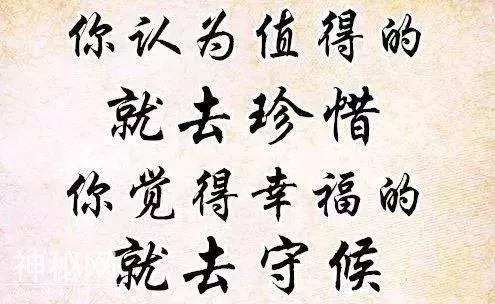 你认为值得的
就去珍惜
你觉得幸福的
就去守候
神秘网